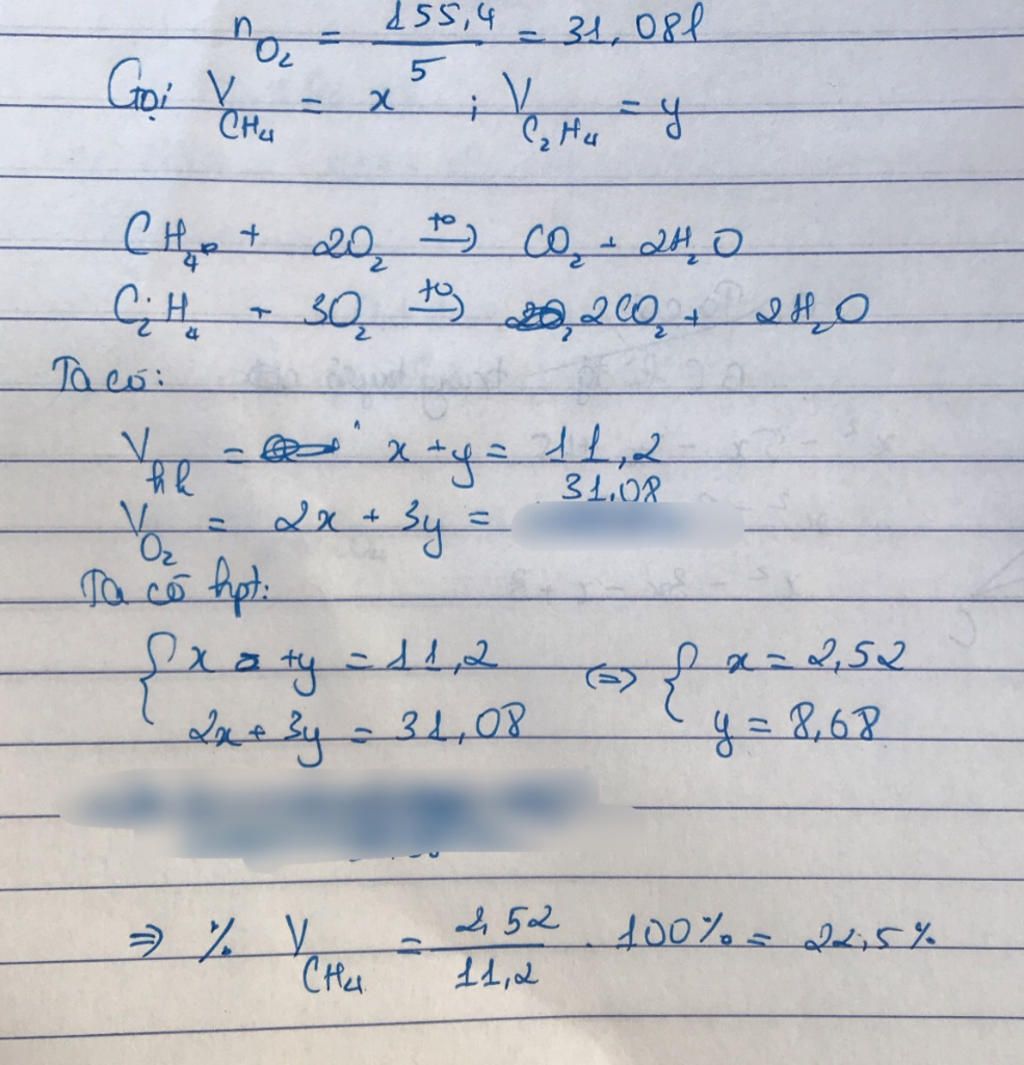 n O₂ = 155,4 / 5 = 31,08l
Gọi V CH₄ = x ; V C₂H₄ = y
CH₄ + 2O₂ t° → CO₂ + 2H₂O
C₂H₄ + 3O₂ t° → 2CO₂ + 2H₂O
Ta có:
V hh = x + y = 11,2
31,08
V O₂ = 2x + 3y =
Ta có hpt:
{ x + y = 11,2 <=> { x = 2,52
2x + 3y = 31,08 y = 8,68
=> % V CH₄ = 2,52 / 11,2 . 100% = 22,5%